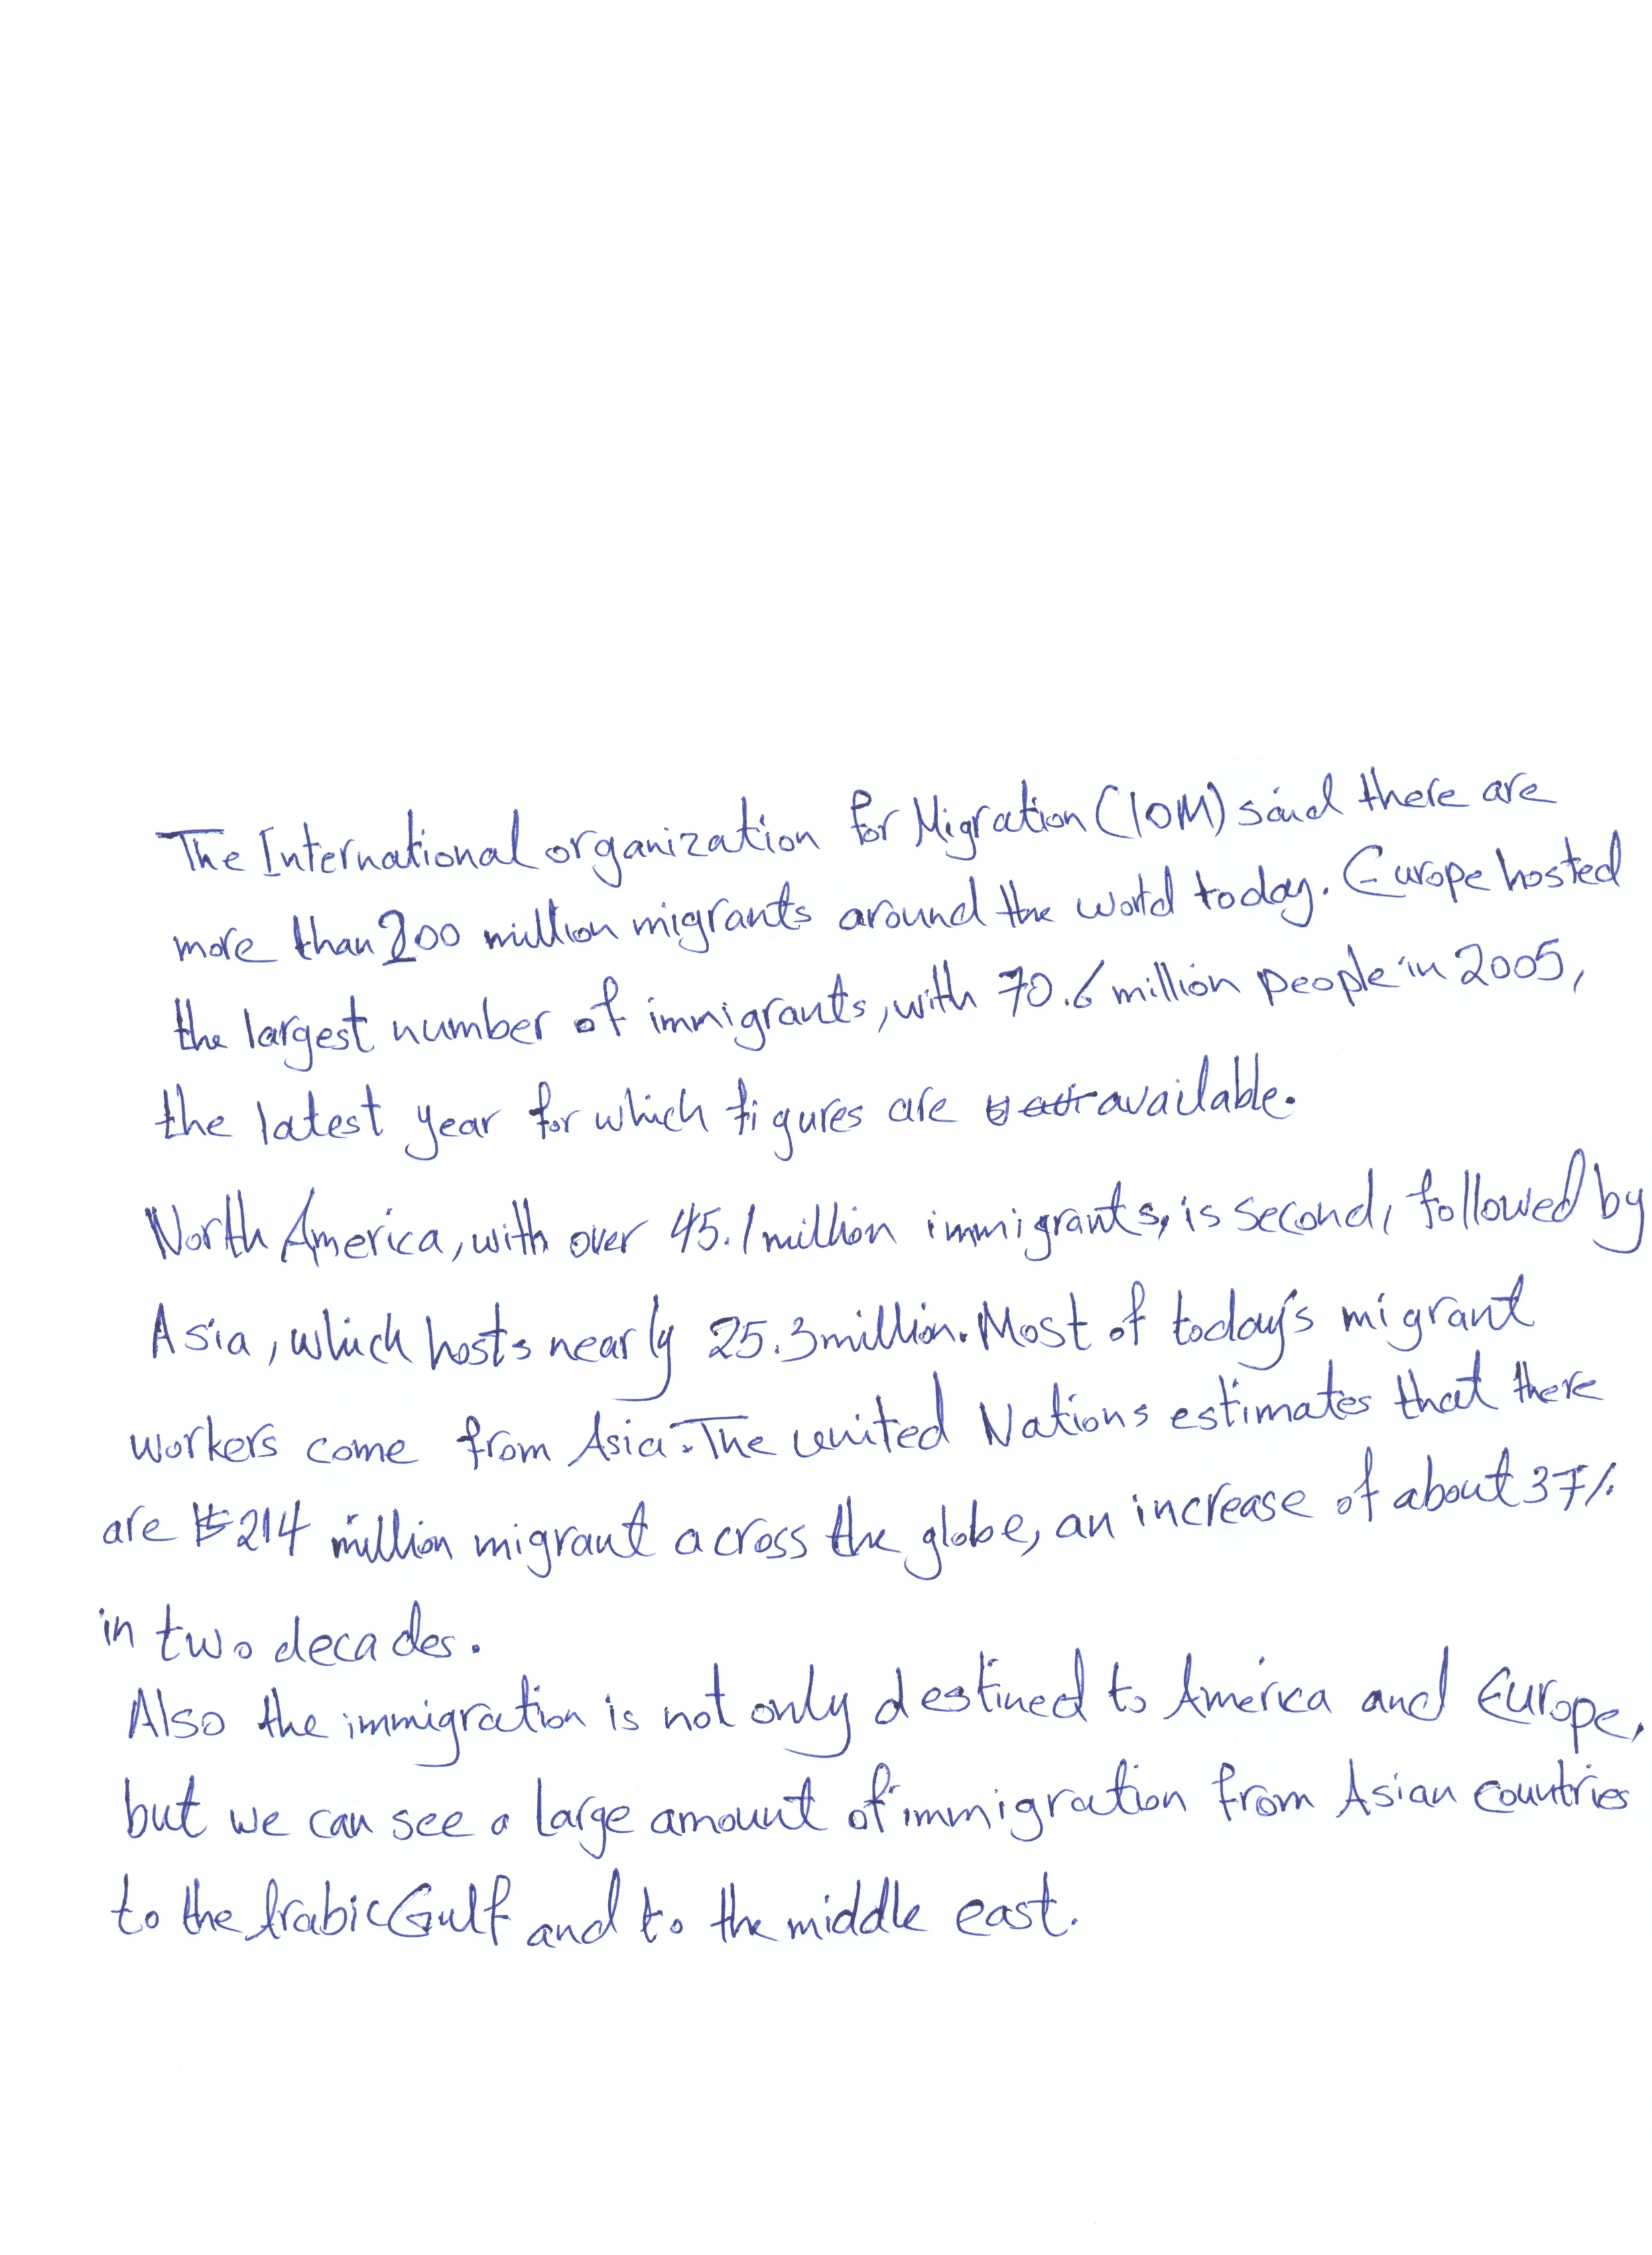 The International organization for Migration (IOM) said there are
more than 200 million migrants around the world today. Europe hosted
the largest number of immigrants, with 70.6 million people in 2005,
the latest year for which figures are available.
North America, with over 45.1 million immigrants, is second, followed by
Asia, which hosts nearly 25.3 million. Most of today's migrant
workers come from Asia. The united Nations estimates that there
are 214 million migrant across the globe, an increase of about 37%
in two decades.
Also the immigration is not only destined to America and Europe,
but we can see a large amount of immigration from Asian countries
to the Arabic Gulf and to the middle east.